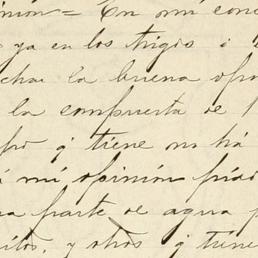 nión = En mi conc
ya en los trigos ó
char la buena opo
la compuerta de l
pó q tiene no há
á mi opinión pido
a parte de agua p
itos, y otros q tiene